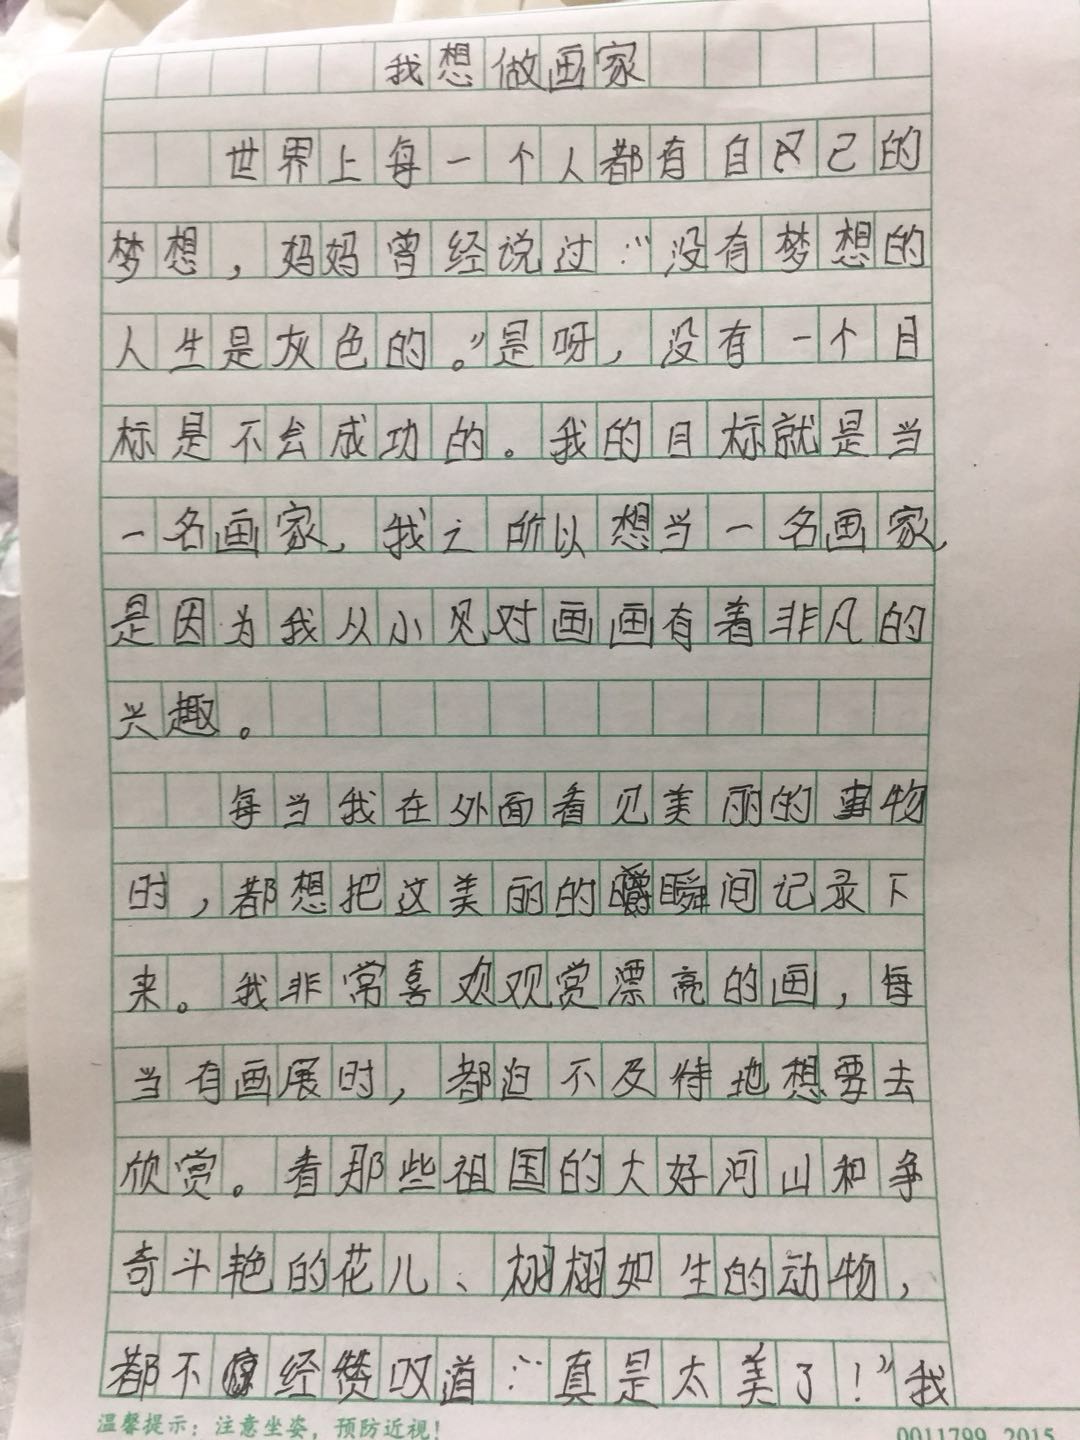 我想做画家
世界上每一个人都有自己的
梦想，妈妈曾经说过：“没有梦想的
人生是灰色的。”是呀，没有一个目
标是不会成功的。我的目标就是当
一名画家，我之所以想当一名画家，
是因为我从小见对画画有着非凡的
兴趣。
每当我在外面看见美丽的事物
时，都想把这美丽的瞬间记录下
来。我非常喜欢观赏漂亮的画，每
当有画展时，都迫不及待地想要去
欣赏。看那些祖国的大好河山和争
奇斗艳的花儿、栩栩如生的动物，
都不经赞叹道：“真是太美了！”我
温馨提示：注意坐姿，预防近视！
0011799 2015